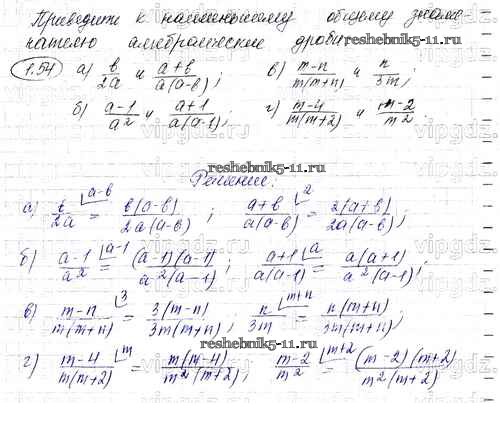 Приведите к наименьшему общему знаме-
нателю алгебраические дроби:
1.54 а) b/2a и (a+b)/(a(a-b)); в) (m-n)/(m(m+n)) и n/3m;
б) (a-1)/a² и (a+1)/(a(a-1)); г) (m-4)/(m(m+2)) и (m-2)/m²
reshebnik5-11.ru
Решение:
а) b/2a ⌊a-b = b(a-b)/(2a(a-b)); (a+b)/(a(a-b)) ⌊2 = 2(a+b)/(2a(a-b));
б) (a-1)/a² ⌊a-1 = (a-1)(a-1)/(a²(a-1)); (a+1)/(a(a-1)) ⌊a = a(a+1)/(a²(a-1));
в) (m-n)/(m(m+n)) ⌊3 = 3(m-n)/(3m(m+n)); n/3m ⌊m+n = n(m+n)/(3m(m+n));
reshebnik5-11.ru
г) (m-4)/(m(m+2)) ⌊m = m(m-4)/(m²(m+2)); (m-2)/m² ⌊m+2 = (m-2)(m+2)/(m²(m+2))
reshebnik5-11.ru